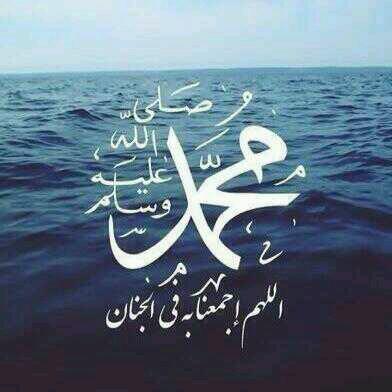 محمد
صلى
الله
عليه
وسلم
اللهم إجمعنا به في الجنان